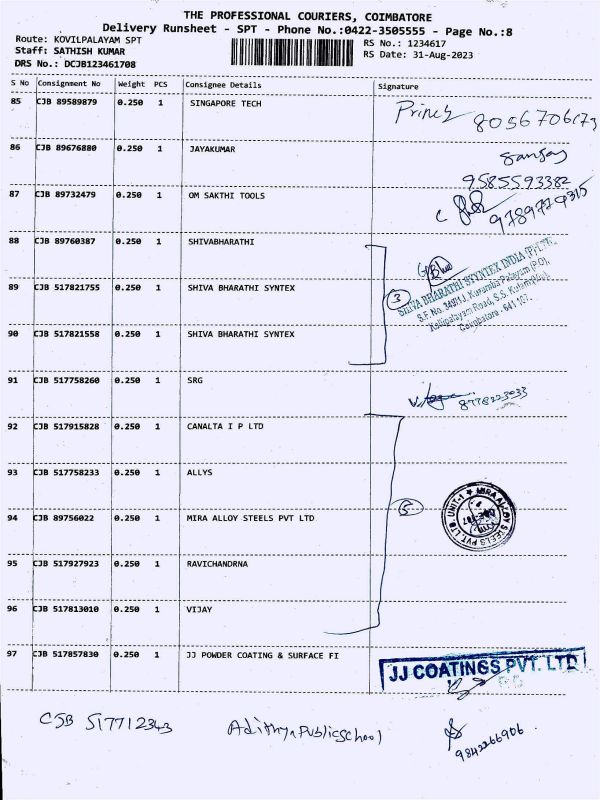 THE PROFESSIONAL COURIERS, COIMBATORE
Delivery Runsheet - SPT - Phone No.:0422-3505555 - Page No.:8
Route: KOVILPALAYAM SPT
RS No.: 1234617
Staff: SATHISH KUMAR
RS Date: 31-Aug-2023
DRS No.: DCJB123461708
S No Consignment No Weight PCS Consignee Details Signature
85 CJB 89589879 0.250 1 SINGAPORE TECH
8056706173
86 CJB 89676880 0.250 1 JAYAKUMAR
9585593382
87 CJB 89732479 0.250 1 OM SAKTHI TOOLS
88 CJB 89760387 0.250 1 SHIVABHARATHI
89 CJB 517821755 0.250 1 SHIVA BHARATHI SYNTEX
3
SHIVA BHARATHI SYYNTEX INDIA (P) LTD,
S.F. No. 349/1J, Kurumba Palayam (P.O),
Kallipalayam Road, S.S. Kulam(Via),
Coimbatore - 641 107.
90 CJB 517821558 0.250 1 SHIVA BHARATHI SYNTEX
91 CJB 517758260 0.250 1 SRG
92 CJB 517915828 0.250 1 CANALTA I P LTD
93 CJB 517758233 0.250 1 ALLYS
94 CJB 89756022 0.250 1 MIRA ALLOY STEELS PVT LTD
5
MIRA ALLOY STEELS PVT. LTD. UNIT-1
95 CJB 517927923 0.250 1 RAVICHANDRNA
96 CJB 517813010 0.250 1 VIJAY
97 CJB 517857830 0.250 1 JJ POWDER COATING & SURFACE FI
JJ COATINGS PVT. LTD
CJB 517712343 Adithya Public School
9842266906